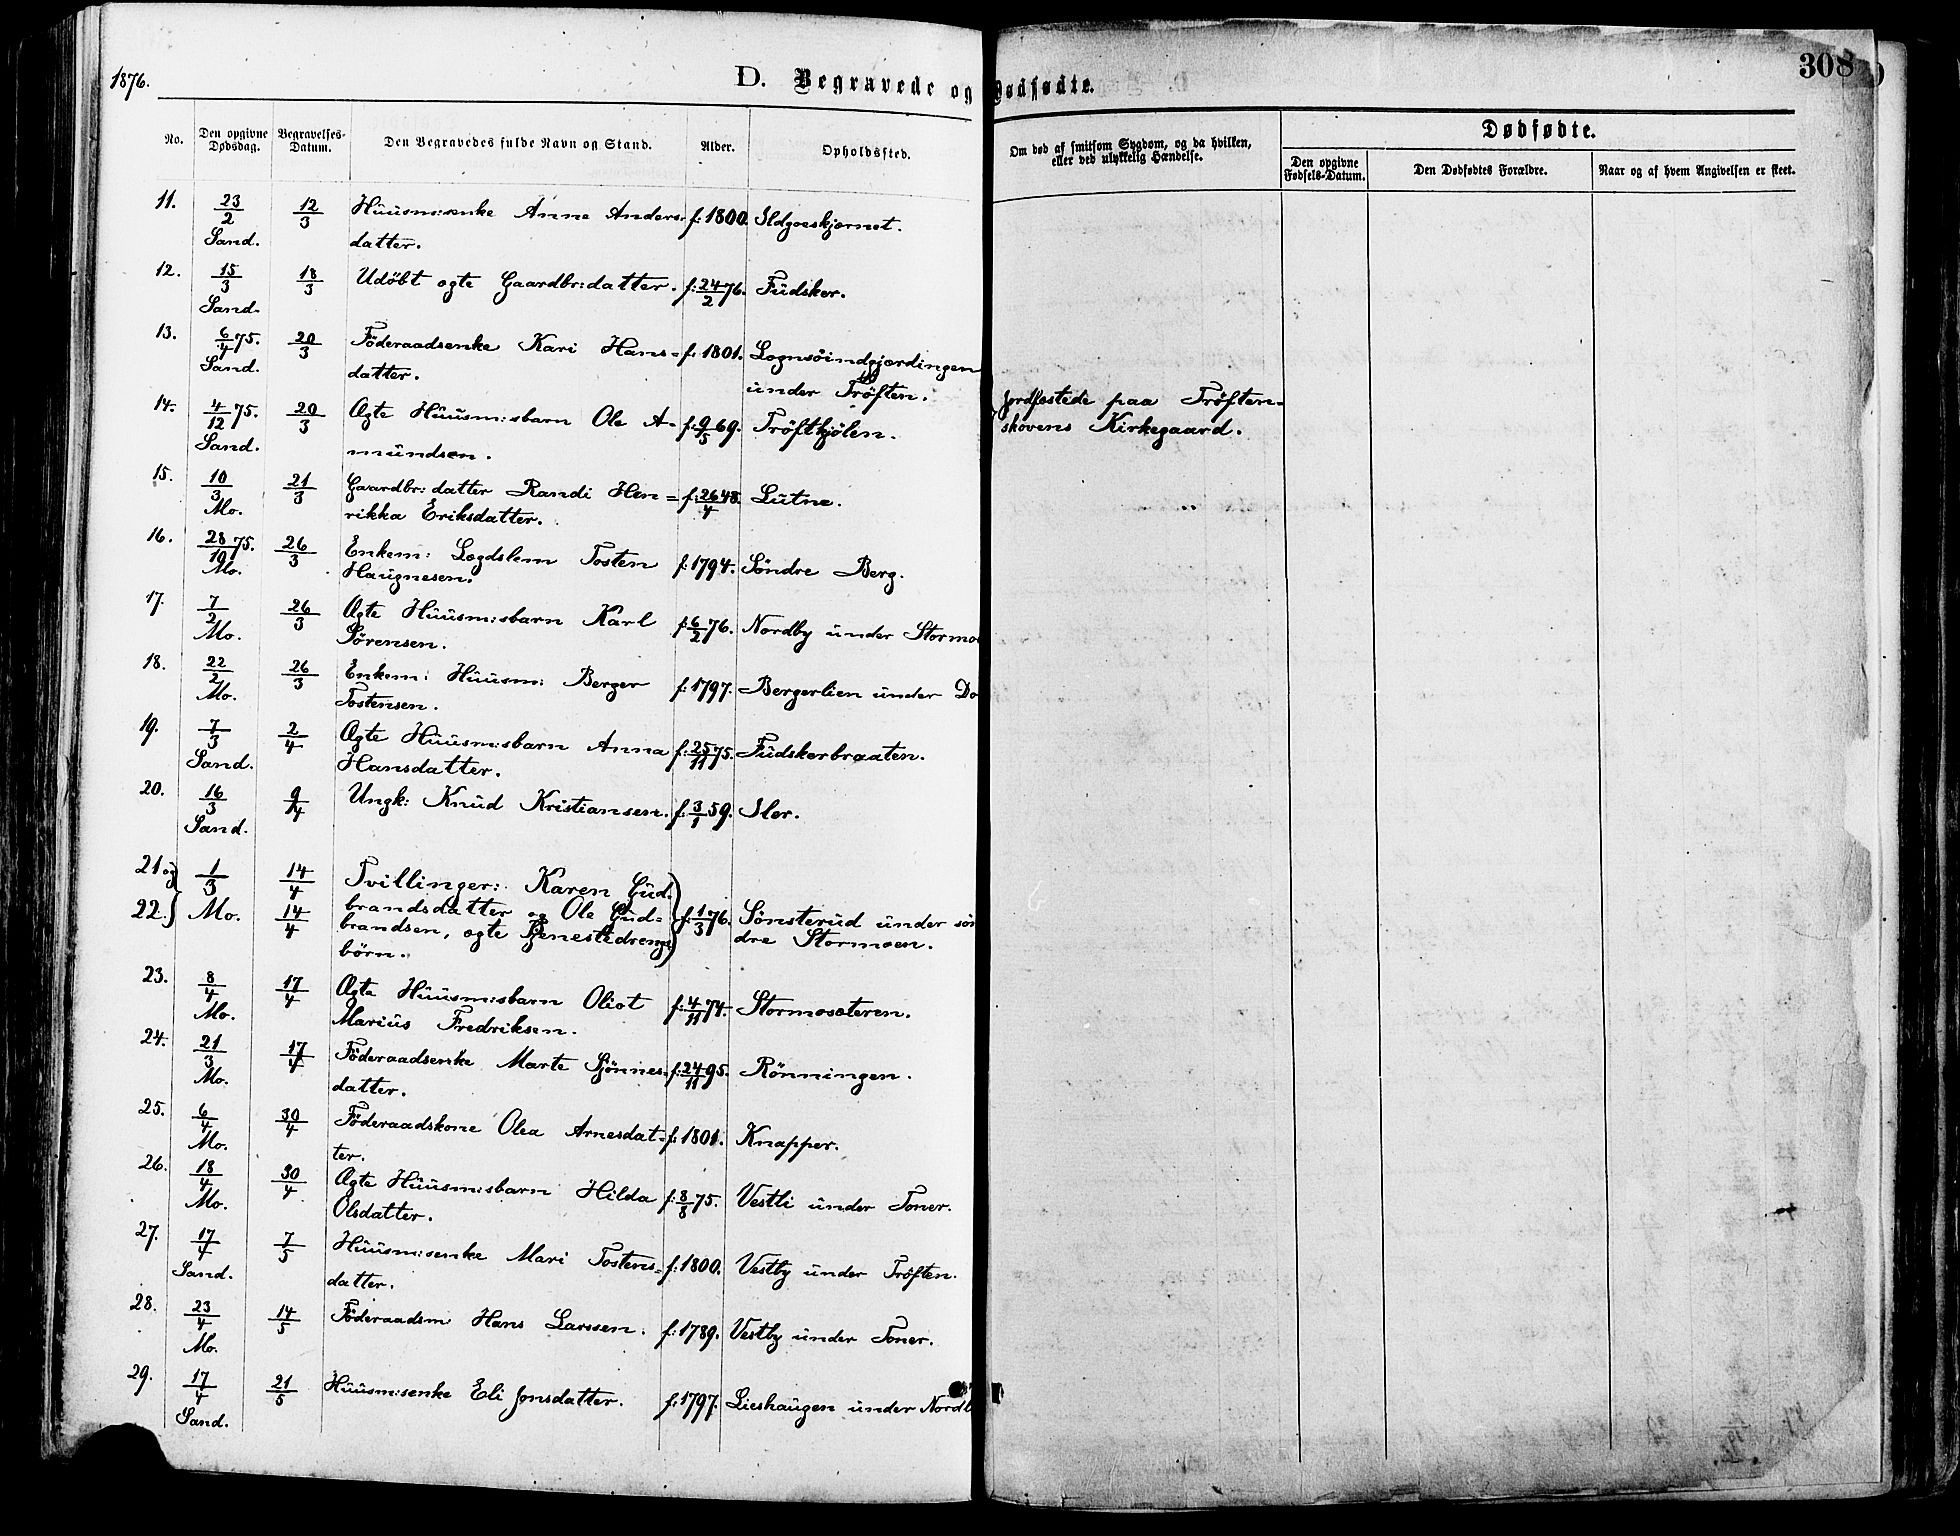 1876.
D. Begravede og Dødfødte.
308
No.
Den opgivne Dødsdag.
Begravelses-Datum.
Den Begravedes fulde Navn og Stand.
Alder.
Opholdssted.
Om død af smitsom Sygdom, og da hvilken,
eller ved ulykkelig Hændelse.
Dødfødte.
Den opgivne Fødsels-Datum.
Den Dødfødtes Forældre.
Naar og af hvem Angivelsen er skeet.
11. 23/2 12/3 Huusm:senke Anne Anders- f: 1800.
Sand. datter.
12. 15/3 18/3 Udöbt ægte Gaardbr:datter. f: 24/2 76. Fudsker.
Sand.
13. 6/4 75. 20/3 Föderaadsenke Kari Hans= f: 1801. Lognsöindgjærdingen
Sand. datter. under Tröften.
14. 4/12 75. 20/3 Ægte Huusm:sbarn Ole A= f: 9/5 69. Tröftkjölen. Jordfæstede paa Tröften=
Sand. mundsen. skovens Kirkegaard.
15. 10/3 21/3 Gaardbr: datter Randi Hen= f: 26/4 48. Lutne.
Mo. rikka Eriksdatter.
16. 28/10 75. 26/3 Enkem: Lægdslem Tosten f: 1794. Söndre Berg.
Mo. Haugnesen.
17. 7/2 26/3 Ægte Huusm:sbarn Karl f: 6/2 76. Nordby under Stormo
Mo. Sörensen.
18. 22/2 26/3 Enkem: Huusm: Berger f: 1797. Bergerlien under Do
Mo. Tostensen.
19. 7/3 2/4 Ægte Huusm:sbarn Anna f: 25/11 75. Fudskerbraaten.
Sand. Hansdatter.
20. 16/3 9/4 Ungk: Knud Kristiansen. f: 3/1 59. Sler.
Sand.
21 og 1/3 14/4 Tvillinger: Karen Gud=
22. Mo. 14/4 brandsdatter og Ole Gud= f: 1/3 76. Sönsterud under sön
brandsen, ægte Tjenestedrengs dre Stormoen.
börn.
23. 8/4 17/4 Ægte Huusm:sbarn Oliot f: 4/11 74. Stormosæteren.
Mo. Marius Fredriksen.
24. 21/3 17/4 Föderaadsenke Marte Sjönnes= f: 24/11 95. Rönningen.
Mo. datter.
25. 6/4 30/4 Föderaadskone Olea Arnesdat= f: 1801. Knapper.
Mo. ter.
26. 18/4 30/4 Ægte Huusm:sbarn Hilda f: 8/8 75. Vestli under Toner.
Mo. Olsdatter.
27. 17/4 7/5 Huusm:senke Mari Tostens= f: 1800. Vestby under Tröften.
Sand. datter.
28. 23/4 14/5 Föderaadsm Hans Larssen. f: 1789. Vestby under Toner.
Mo.
29. 17/4 21/5 Huusm:senke Eli Jonsdatter. f: 1797. Lieshaugen under Nordb
Sand.